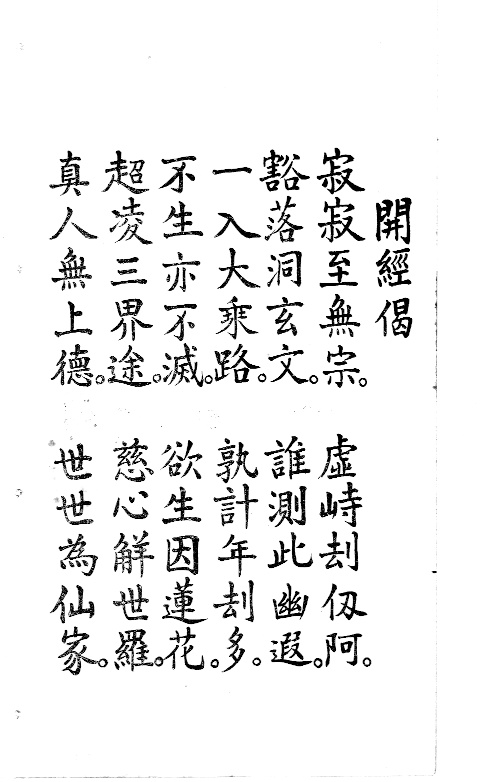 開經偈
寂寂至無宗。虛峙刦仞阿。
豁落洞玄文。誰測此幽遐。
一入大乘路。孰計年刦多。
不生亦不滅。欲生因蓮花。
超凌三界途。慈心解世羅。
真人無上德。世世為仙家。